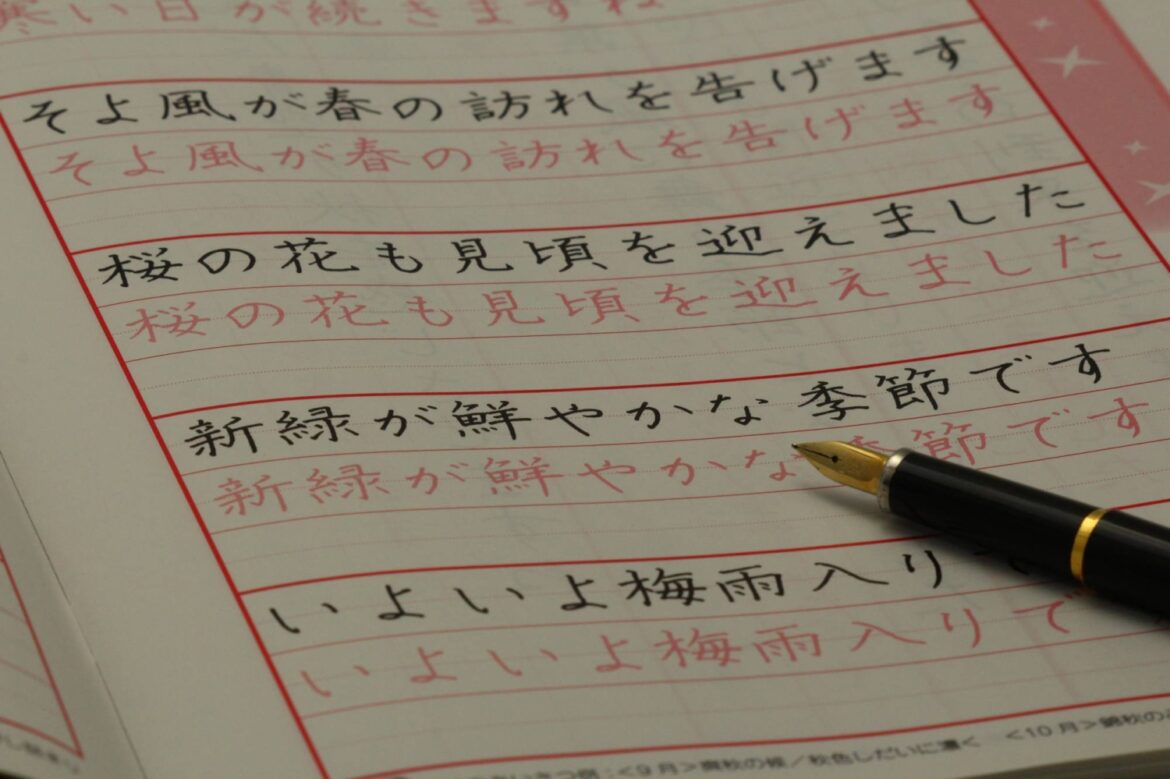 寒い日が続きますね
そよ風が春の訪れを告げます
そよ風が春の訪れを告げます
桜の花も見頃を迎えました
桜の花も見頃を迎えました
新緑が鮮やかな季節です
新緑が鮮やかな季節です
いよいよ梅雨入り
いよいよ梅雨入りで
<9月> 秋色しだいに濃く <10月>